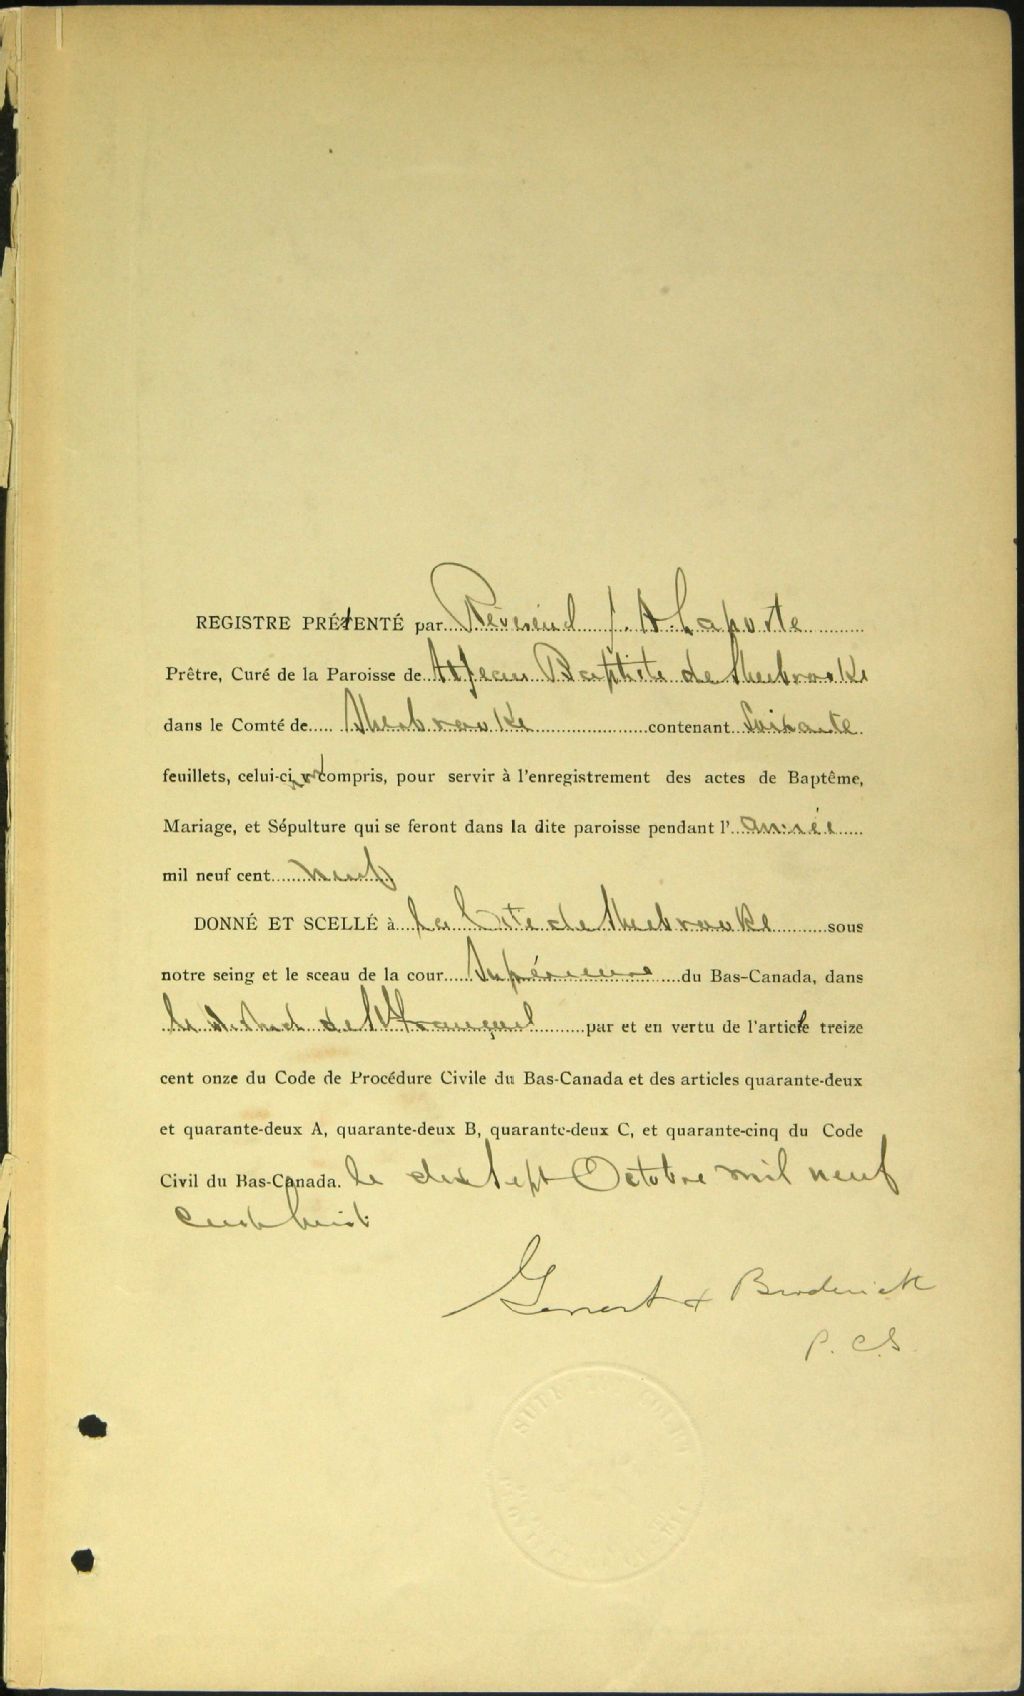 REGISTRE PRÉSENTÉ par Révérend J. A. Laporte
Prêtre, Curé de la Paroisse de St Jean Baptiste de Sherbrooke
dans le Comté de Sherbrooke contenant Soixante
feuillets, celui-ci non compris, pour servir à l'enregistrement des actes de Baptême,
Mariage, et Sépulture qui se feront dans la dite paroisse pendant l'année
mil neuf cent neuf
DONNÉ ET SCELLÉ à la Cité de Sherbrooke sous
notre seing et le sceau de la cour Supérieure du Bas-Canada, dans
le district de St François par et en vertu de l'article treize
cent onze du Code de Procédure Civile du Bas-Canada et des articles quarante-deux
et quarante-deux A, quarante-deux B, quarante-deux C, et quarante-cinq du Code
Civil du Bas-Canada. le dix sept Octobre mil neuf
cent huit
& Broderick
P. C. S.
SUPERIOR COURT